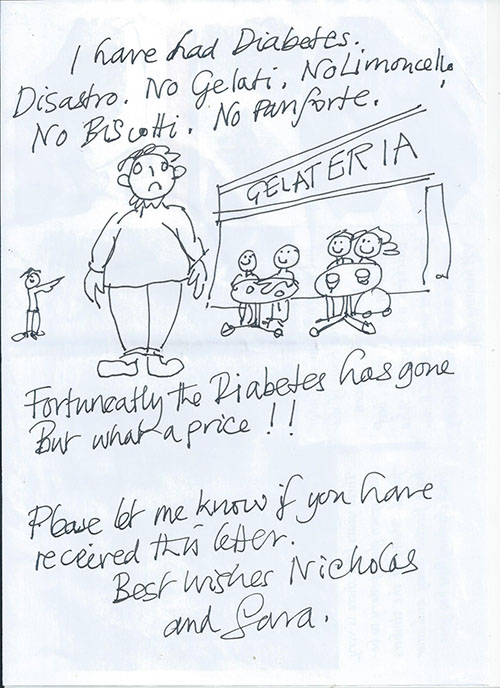 I have had Diabetes.
Disastro. No Gelati. No Limoncello.
No Biscotti. No Panforte.
GELATERIA
Fortuneatly the Diabetes has gone
But what a price!!
Please let me know if you have
received this letter.
Best wishes Nicholas
and Sara.